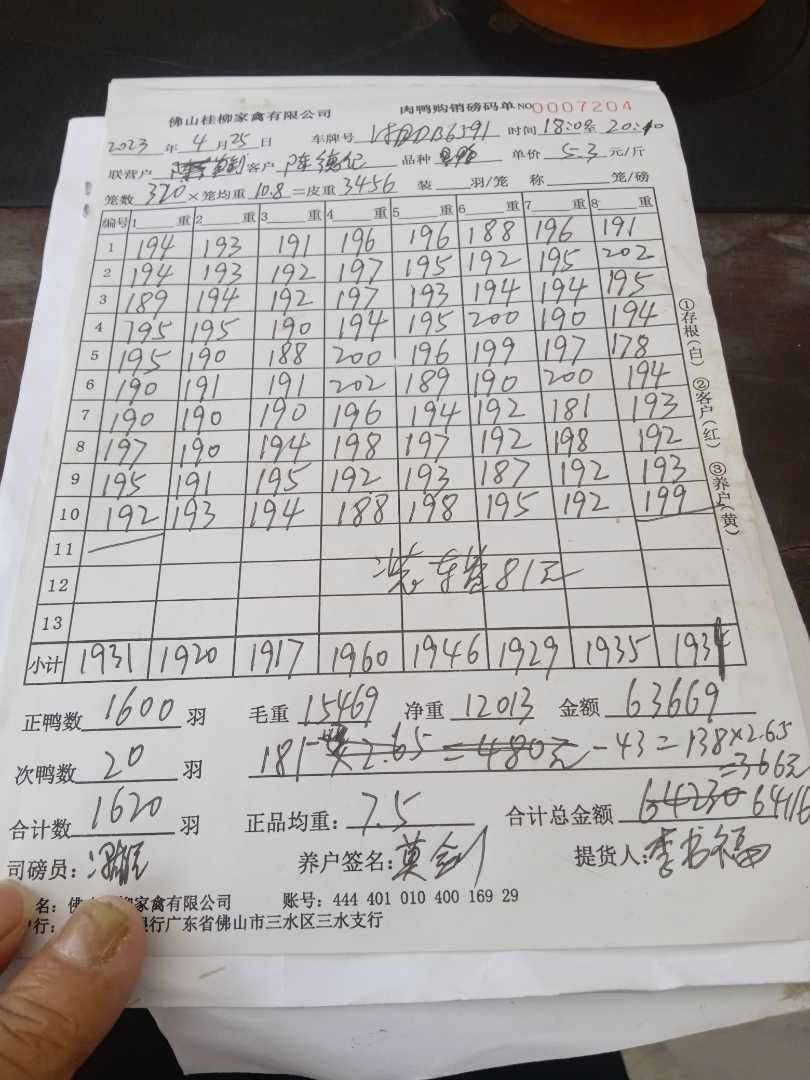 佛山桂柳家禽有限公司 肉鸭购销磅码单 NO 0007204
2023 年 4 月 25 日 车牌号 B6591 时间 18:00至 20:10
联营户 客户 陈德记 品种 单价 5.3 元/斤
笼数 320 ×笼均重 10.8 =皮重 3456 装 羽/笼 称 笼/磅
编号 1 重 2 重 3 重 4 重 5 重 6 重 7 重 8 重
1 194 193 191 196 196 188 196 191
2 194 193 192 197 195 192 195 202
3 189 194 192 197 193 194 194 195
4 195 195 190 194 195 200 190 194
5 195 190 188 200 196 199 197 178
6 190 191 191 202 189 190 200 194
7 190 190 190 196 194 192 181 193
8 197 190 194 198 197 192 198 192
9 195 191 195 192 193 187 192 193
10 192 193 194 188 198 195 192 199
11
12 装车笼81元
13
小计 1931 1920 1917 1960 1946 1929 1935 1934
正鸭数 1600 羽 毛重 15469 净重 12013 金额 63669
次鸭数 20 羽 181 ×2.65=480元 -43=138×2.65
=366元
合计数 1620 羽 正品均重: 7.5 合计总金额 64230 64116
司磅员: 养户签名: 莫剑 提货人: 李书福
名: 佛 柳家禽有限公司 账号: 444 401 010 400 169 29
行: 银行广东省佛山市三水区三水支行
①存根(白) ②客户(红) ③养户(黄)